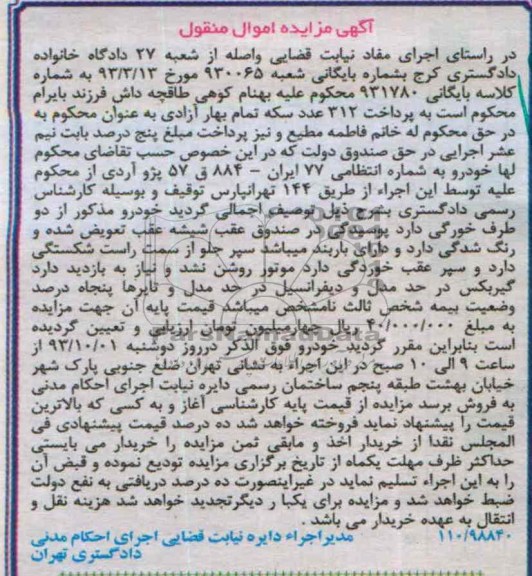 آگهی مزایده اموال منقول
در راستای اجرای مفاد نیابت قضایی واصله از شعبه ۲۷ دادگاه خانواده
دادگستری کرج بشماره بایگانی شعبه ۹۳۰۰۶۵ مورخ ۹۳/۳/۱۳ به شماره
کلاسه بایگانی ۹۳۱۷۸۰ محکوم علیه بهنام کوهی طاقچه داش فرزند بایرام
محکوم است به پرداخت ۳۱۲ عدد سکه تمام بهار آزادی به عنوان محکوم به
در حق محکوم له خانم فاطمه مطیع و نیز پرداخت مبلغ پنج درصد بابت نیم
عشر اجرایی در حق صندوق دولت که در این خصوص حسب تقاضای محکوم
لها خودرو به شماره انتظامی ۷۷ ایران – ۸۸۴ ق ۵۷ پژو آردی از محکوم
علیه توسط این اجراء از طریق ۱۴۴ تهرانپارس توقیف و بوسیله کارشناس
رسمی دادگستری بشرح ذیل توصیف اجمالی گردید خودرو مذکور از دو
طرف خورگی دارد پوسیدگی در صندوق عقب شیشه عقب تعویض شده و
رنگ شدگی دارد و دارای باربند میباشد سپر جلو از سمت راست شکستگی
دارد و سپر عقب خوردگی دارد موتور روشن نشد و نیاز به بازدید دارد
گیربکس در حد مدل و دیفرانسیل در حد مدل و تایرها پنجاه درصد
وضعیت بیمه شخص ثالث نامشخص میباشد قیمت پایه آن جهت مزایده
به مبلغ ۴۰/۰۰۰/۰۰۰ ریال چهارمیلیون تومان ارزیابی و تعیین گردیده
است بنابراین مقرر گردید خودرو فوق الذکر درروز دوشنبه ۹۳/۱۰/۰۱ از
ساعت ۹ الی ۱۰ صبح در این اجراء به نشانی تهران ضلع جنوبی پارک شهر
خیابان بهشت طبقه پنجم ساختمان رسمی دایره نیابت اجرای احکام مدنی
به فروش برسد مزایده از قیمت پایه کارشناسی آغاز و به کسی که بالاترین
قیمت را پیشنهاد نماید فروخته خواهد شد ده درصد قیمت پیشنهادی فی
المجلس نقدا از خریدار اخذ و مابقی ثمن مزایده را خریدار می بایستی
حداکثر ظرف مهلت یکماه از تاریخ برگزاری مزایده تودیع نموده و قبض آن
را به این اجراء تسلیم نماید در غیراینصورت ده درصد دریافتی به نفع دولت
ضبط خواهد شد و مزایده برای یکبا ر دیگرتجدید خواهد شد هزینه نقل و
انتقال به عهده خریدار می باشد .
۱۱۰/۹۸۸۴۰ مدیراجراء دایره نیابت قضایی اجرای احکام مدنی
دادگستری تهران